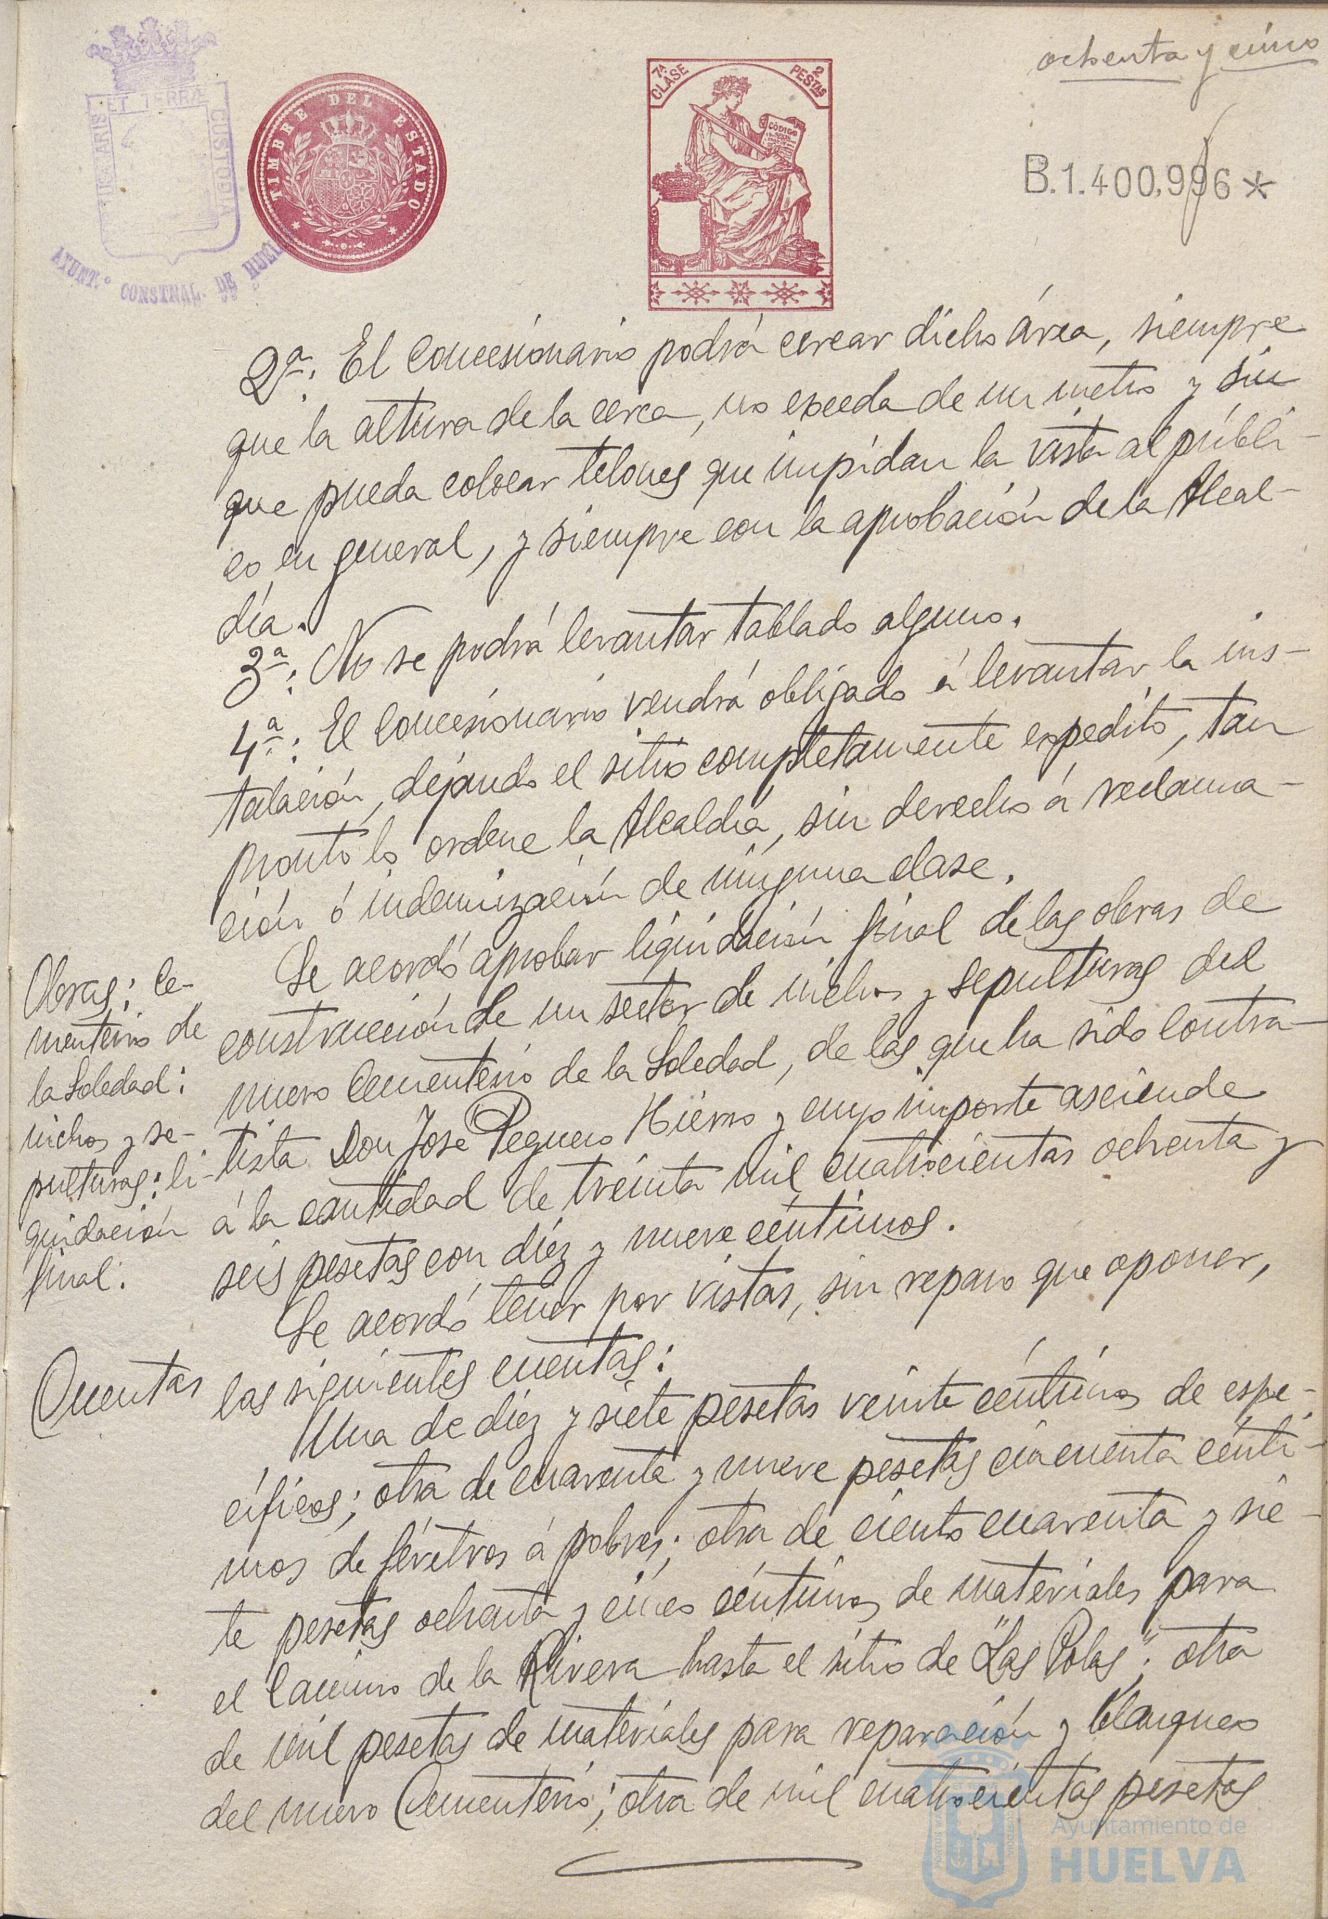 ochenta y cinco
PORTUS MARIS ET TERRÆ CUSTODIA
AYUNT.º CONSTNAL. DE HUELVA
TIMBRE DEL ESTADO
7ª CLASE
2 PESTAS
CODIGO
B.1.400,996*
2ª: El Concesionario podrá cercar dicho área, siempre
que la altura de la cerca, no exceda de un metro y sin
que pueda colocar telones que impidan la vista al públi-
co en general, y siempre con la aprobación de la Alcal-
día.
3ª: No se podrá levantar tablado alguno.
4ª: El Concesionario vendrá obligado á levantar la ins-
talación, dejando el sitio completamente expedito, tan
pronto lo ordene la Alcaldía, sin derecho á reclama-
ción ó indemnización de ninguna clase.
Obras: Ce-
menterio de
la Soledad:
nichos y se-
pulturas: li-
quidación
final:
Se acordó aprobar liquidación final de las obras de
construcción de un sector de nichos y sepulturas del
nuevo Cementerio de la Soledad, de las que ha sido contra-
tista Don José Peguero Hierro y cuyo importe asciende
á la cantidad de treinta mil cuatrocientas ochenta y
seis pesetas con diez y nueve céntimos.
Cuentas
Se acordó tener por vistas, sin reparo que oponer,
las siguientes cuentas:
Una de diez y siete pesetas veinte céntimos de espe-
cíficos; otra de cuarenta y nueve pesetas cincuenta cénti-
mos de féretros á pobres; otra de ciento cuarenta y sie-
te pesetas ochenta y cinco céntimos de materiales para
el Camino de la Rivera hasta el sitio de "Las Polas"; otra
de mil pesetas de materiales para reparación y blanqueo
del nuevo Cementerio; otra de mil cuatrocientas pesetas
Ayuntamiento de
HUELVA